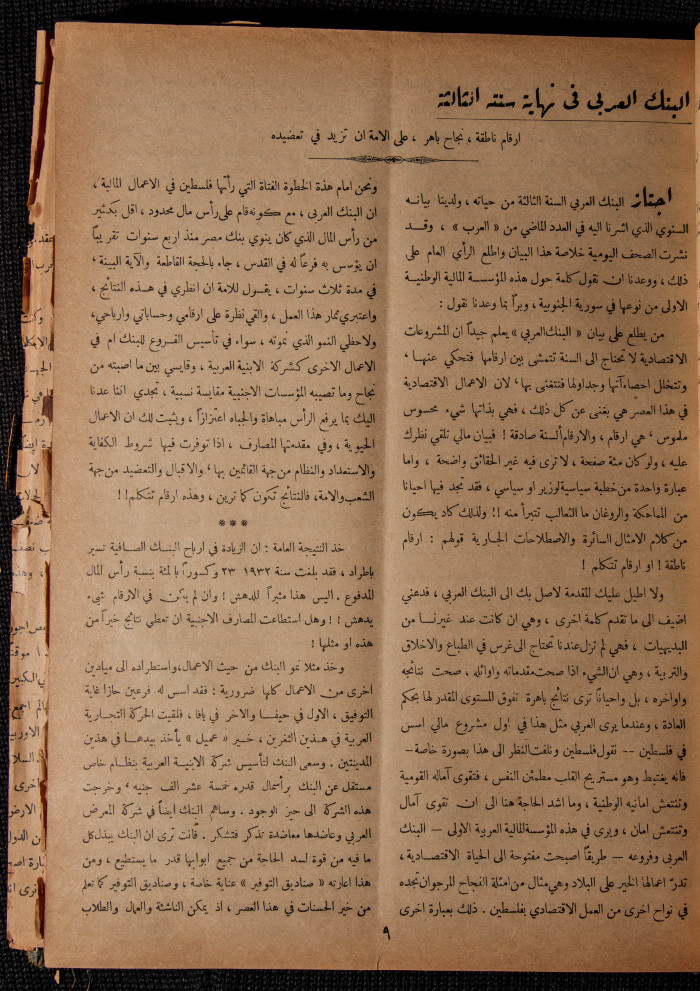 البنك العربي في نهاية سنته الثالثة
ارقام ناطقة ، نجاح باهر ، على الامة ان تزيد في تعضيده
اجتاز البنك العربي السنة الثالثة من حياته ، ولدينا بيانه
السنوي الذي اشرنا اليه في العدد الماضي من « العرب » ، وقد
نشرت الصحف اليومية خلاصة هذا البيان واطلع الرأي العام على
ذلك ، ووعدنا ان نقول كلمة حول هذه المؤسسة المالية الوطنية
الاولى من نوعها في سورية الجنوبية ، وبراً بما وعدنا نقول :
من يطلع على بيان « البنك العربي » يعلم جيداً ان المشروعات
الاقتصادية لا تحتاج الى السنة تتمشى بين ارقامها فتحكي عنها ،
وتتخلل احصاءآتها وجداولها فتتغنى بها ، لان الاعمال الاقتصادية
في هذا العصر هي بغنى عن كل ذلك ، فهي بذاتها شيء محسوس
ملموس ، هي ارقام ، والارقام ألسنة صادقة ! فبيان مالي تلقي نظرك
عليه ، ولو كان مئة صفحة ، لا ترى فيه غير الحقائق واضحة ، واما
عبارة واحدة من خطبة سياسية لوزير او سياسي ، فقد تجد فيها احيانا
من المماحكة والروغان ما الثعالب تتبرأ منه !! ولذلك كاد يكون
من كلام الامثال السائرة والاصطلاحات الجارية قولهم : ارقام
ناطقة ! او ارقام تتكلم !
ولا اطيل عليك المقدمة لاصل بك الى البنك العربي ، فدعني
اضيف الى ما تقدم كلمة اخرى ، وهي ان كانت عند غيرنا من
البديهيات ، فهي لم تزل عندنا تحتاج الى غرس في الطباع والاخلاق
والتربية ، وهي ان الشيء اذا صحت مقدماته واوائله ، صحت نتائجه
واواخره ، بل واحياناً ترى نتائج باهرة تفوق المستوى المقدر لها بحكم
العادة ، وعندما يرى العربي مثل هذا في اول مشروع مالي اسس
في فلسطين -- نقول فلسطين ونلفت النظر الى هذا بصورة خاصة –
فانه يغتبط وهو مستريح القلب مطمئن النفس ، فتقوى آماله القومية
وتنتعش امانيه الوطنية ، وما اشد الحاجة هنا الى ان تقوى آمال
وتنتعش امان ، ويرى في هذه المؤسسة المالية العربية الاولى – البنك
العربي وفروعه – طريقاً اصبحت مفتوحة الى الحياة الاقتصادية ،
تدرّ اعمالها الخير على البلاد وهي مثال من امثلة النجاح المرجو ان تجده
في نواح اخرى من العمل الاقتصادي بفلسطين . ذلك بعبارة اخرى
ونحن امام هذة الخطوة الفتاة التي رأتها فلسطين في الاعمال المالية ،
ان البنك العربى ، مع كونه قام على رأس مال محدود ، اقل بكثير
من رأس المال الذي كان ينوي بنك مصر منذ اربع سنوات تقريباً
ان يؤسس به فرعاً له في القدس ، جاء بالحجة القاطعة والآية البينة ،
في مدة ثلاث سنوات ، يقول للامة ان انظري في هذه النتائج ،
واعتبري ثمار هذا العمل ، والقي نظرة على ارقامي وحساباتي وارباحي ،
ولاحظي النمو الذي نموته ، سواء في تأسيس الفروع للبنك ام في
الاعمال الاخرى كشركة الابنية العربية ، وقايسي بين ما اصبته من
نجاح وما تصيبه المؤسسات الاجنبية مقايسة نسبية ، تجدي اننا عدنا
اليك بما يرفع الرأس مباهاة والجباه اعتزازاً ، ويثبت لك ان الاعمال
الحيوية ، وفي مقدمتها المصارف ، اذا توفرت فيها شروط الكفاية
والاستعداد والنظام من جهة القائمين بها ، والاقبال والتعضيد من جهة
الشعب والامة ، فالنتائج تكون كما ترين ، وهذه ارقام تتكلم !!
***
خذ النتيجة العامة : ان الزيادة في ارباح البنك الصافية تسير
باطراد ، فقد بلغت سنة ١٩٣٢ ٢٣ وكسوراً بالمئة بنسبة رأس المال
المدفوع . اليس هذا مثيراً للدهش ! وان لم يكن في الارقام شيء
يدهش !! وهل استطاعت المصارف الاجنبية ان تعطي نتائج خيراً من
هذه او مثلها !
وخذ مثلا نمو البنك من حيث الاعمال ، واستطراده الى ميادين
اخرى من الاعمال كلها ضرورية : فقد اسس له فرعين حازا غاية
التوفيق ، الاول في حيفا والاخر في يافا ، فلقيت الحركة التجارية
العربية في هذين الثغرين ، خير « عميل » يأخذ بيدها في هذين
المدينتين . وسعى البنك لتأسيس شركة الابنية العربية بنظام خاص
مستقل عن البنك برأسمال قدره خمسة عشر الف جنيه ، وخرجت
هذه الشركة الى حيز الوجود . وساهم البنك ايضاً في شركة المعرض
العربي وعاضدها معاضدة تذكر فتشكر . فأنت ترى ان البنك يبذل كل
ما فيه من قوة لسد الحاجة من جميع ابوابها قدر ما يستطيع ، ومن
هذا اعارته « صناديق التوفير » عناية خاصة ، وصناديق التوفير كما تعلم
من خير الحسنات في هذا العصر ، اذ يمكن الناشئة والعمال والطلاب
٩